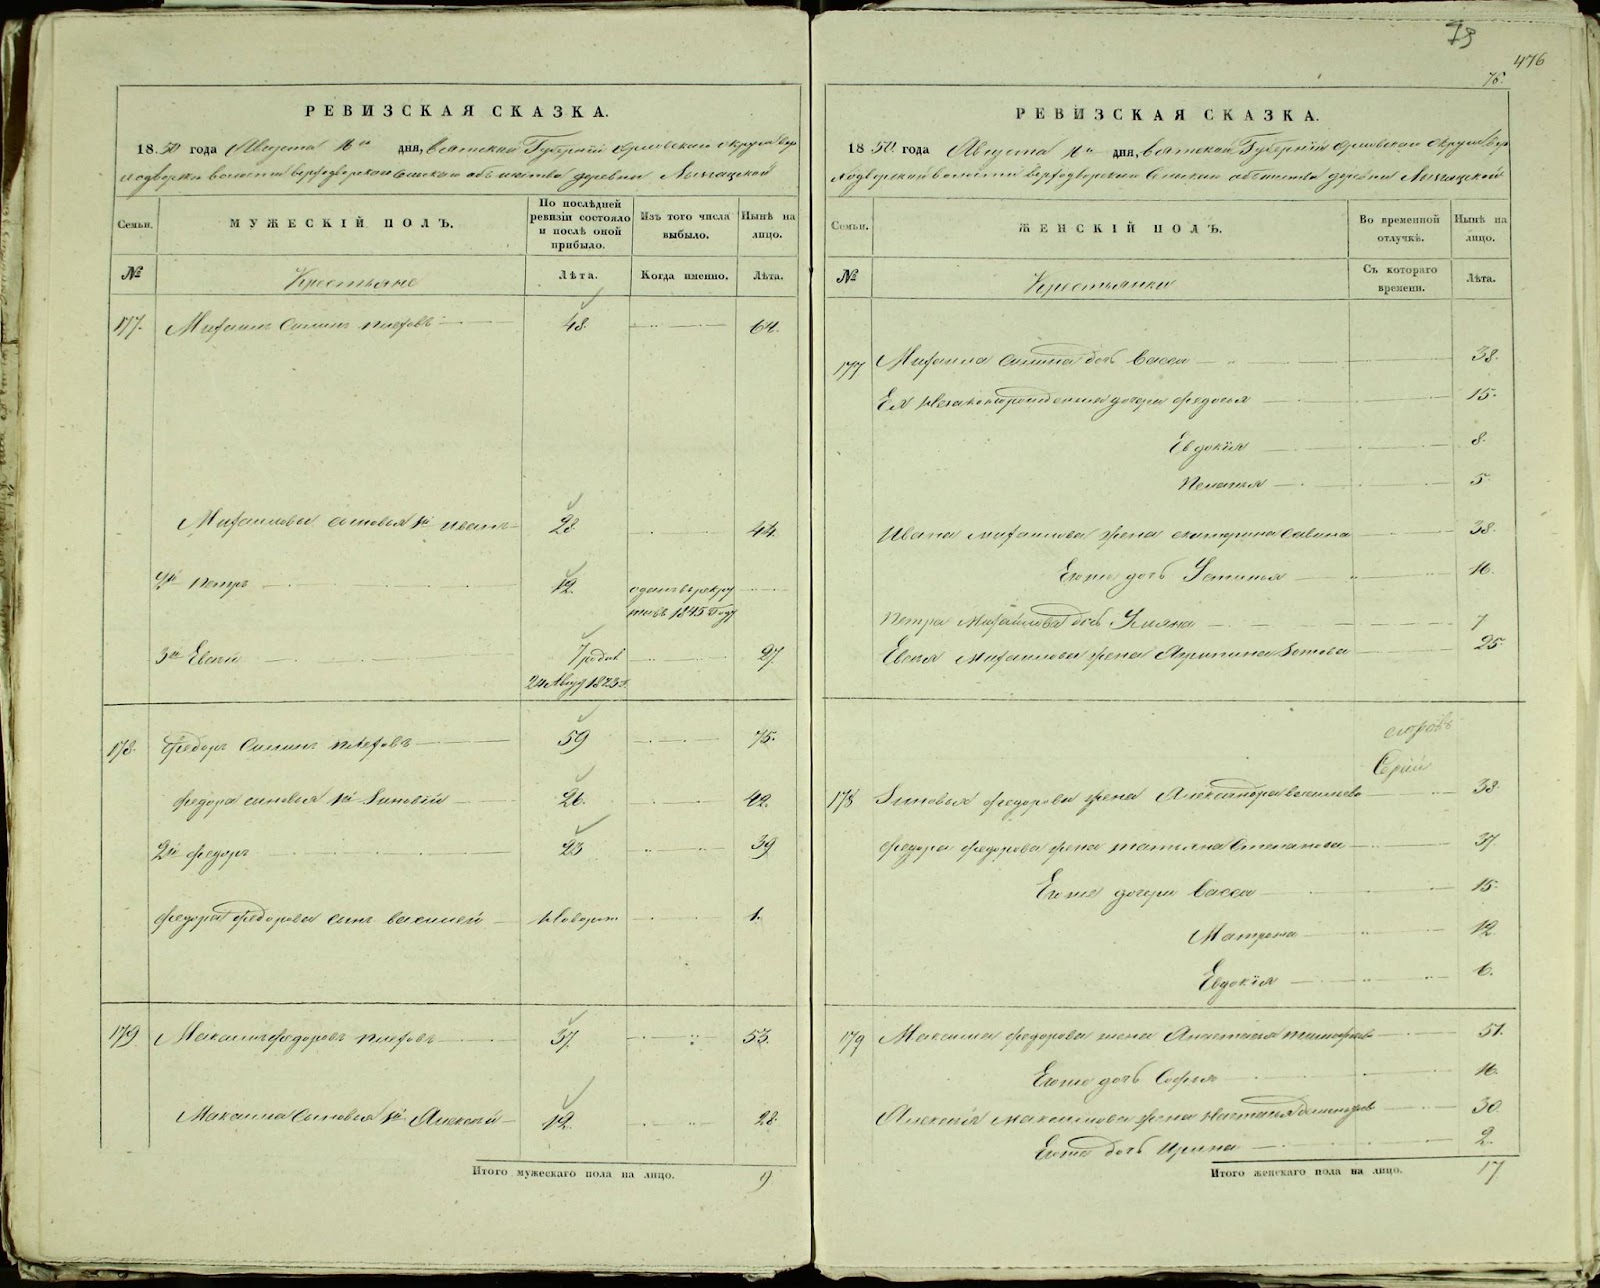 73
476
76.
РЕВИЗСКАЯ СКАЗКА.
1850 года Августа дня, Вятской Губерніи Орловской округи
волости общества деревни
Семьи.
МУЖЕСКІЙ ПОЛЪ.
По послѣдней ревизіи состояло и послѣ оной прибыло.
Изъ того числа выбыло.
Нынѣ на лицо.
№
Крестьяне
Лѣта.
Когда именно.
Лѣта.
177. Михаилъ Силинъ 48. 64.
Михаиловы сыновья 1й Иванъ 28 44.
2й Петръ 12. отданъ въ рекру
ты въ 1845 Году
3й Евсѣй родив 27
24 Август 1823 г.
178 Федоръ Силинъ 59 75.
Федора сыновья 1й Зиновій 26. 42.
2й Федоръ 23 39
Федора Федорова сынъ Василей новорож 1.
179 Максимъ Федоровъ 37. 53.
Максима Сыновья 1й Алексѣй 12. 28
Итого мужескаго пола на лицо. 9
РЕВИЗСКАЯ СКАЗКА.
1850 года Августа дня, Вятской Губерніи Орловской Округи
волости общества деревни
Семьи.
ЖЕНСКІЙ ПОЛЪ.
Во временной отлучкѣ.
Нынѣ на лицо.
№
Крестьянки
Съ котораго времени.
Лѣта.
177 Михаила Силина дочь Васса 38.
Ея незаконнорожденныя дочери Федосья 15.
Евдокія 8.
Пелагья 5
Ивана Михаилова жена Екатерина Савина 38.
Егоже дочь Устинья 16.
Петра Михайлова дочь Ульяна 7
Евсѣя Михаилова жена Агрипина 25.
178 Зиновья Федорова жена Александра Васильева 38.
Федора Федорова жена Татьяна Степанова 37.
Егоже дочери Васса 15.
Матрена 12
Евдокія 6.
179 Максима Федорова жена Анастасья Тимофѣева 51.
Егоже дочь Софья 16.
Алексѣя Максимова жена Настасья 30
Егоже дочь Ирина 2.
Итого женскаго пола на лицо. 17